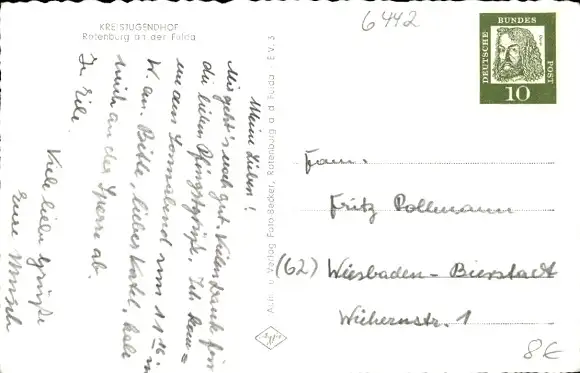 KREISJUGENDHOF
Rotenburg an der Fulda
6442
DEUTSCHE
BUNDES
POST
10
Meine Lieben!
Mir geht's noch gut. Vielen Dank für
die lieben Pfingstgrüße. Ich kom=
me am Sonnabend um 11 16 in
W. an. Bitte, lieber Vati, hole
mich an der Sperre ab.
In Eile
Viele liebe Grüße
Eure
Aufn. u. Verlag Foto-Becker, Rotenburg a. d. Fulda E.V.5
Agfa
Fam.
Fritz Pollmann
(62) Wiesbaden-Bierstadt
Wichernstr. 1
8€